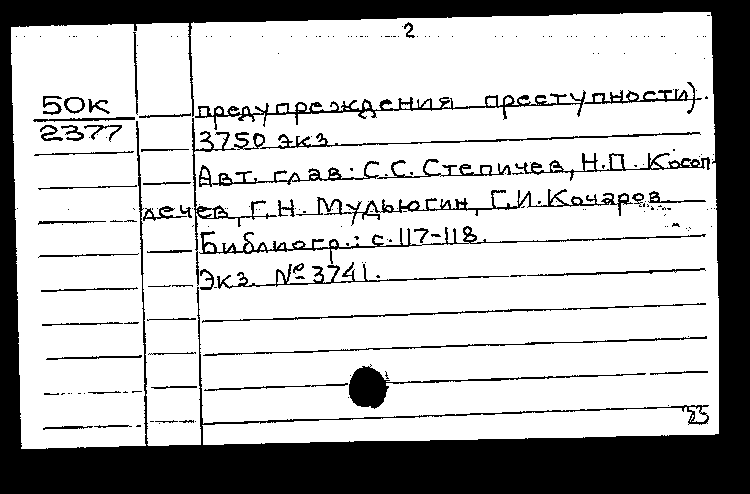 2
50к
2377
предупреждения преступности).
3750 экз.
Авт. глав: С.С. Степичев, Н.П. Косоп-
лечев, Г.Н. Мудьюгин, Г.И. Кочаров.
Библиогр.: с. 117-118.
Экз. № 3741.